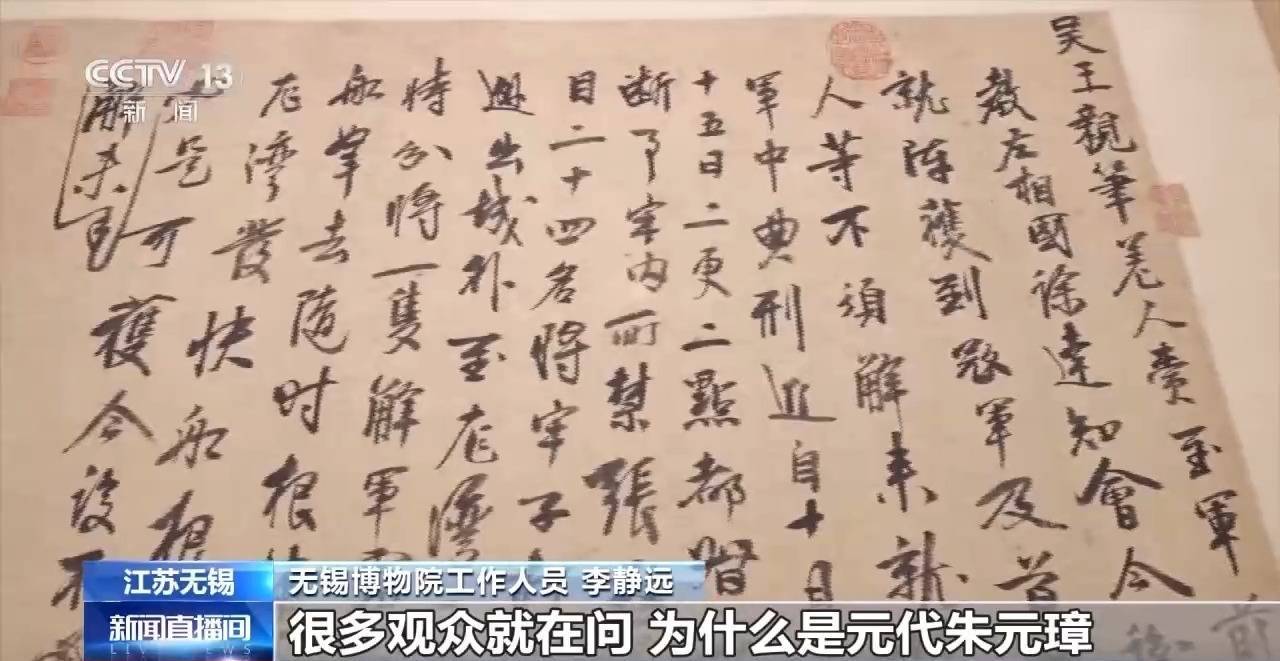 CCTV 13
新闻
吴王親筆差人賫至軍前
教左相國徐達知會今後
就陣獲到寇軍及首
人等不須解来新
軍中典刑進自十月
十五日二更二點都督
断了牢内所禁張
日二十四名將牢子
逃出城外至龙灣
特分將一隻解軍
船牢去隨时根
龙灣發快船根
是可獲今後不
解来
江苏无锡
无锡博物院工作人员 李静远
新闻直播间
LIVE NEWS
很多观众就在问 为什么是元代朱元璋